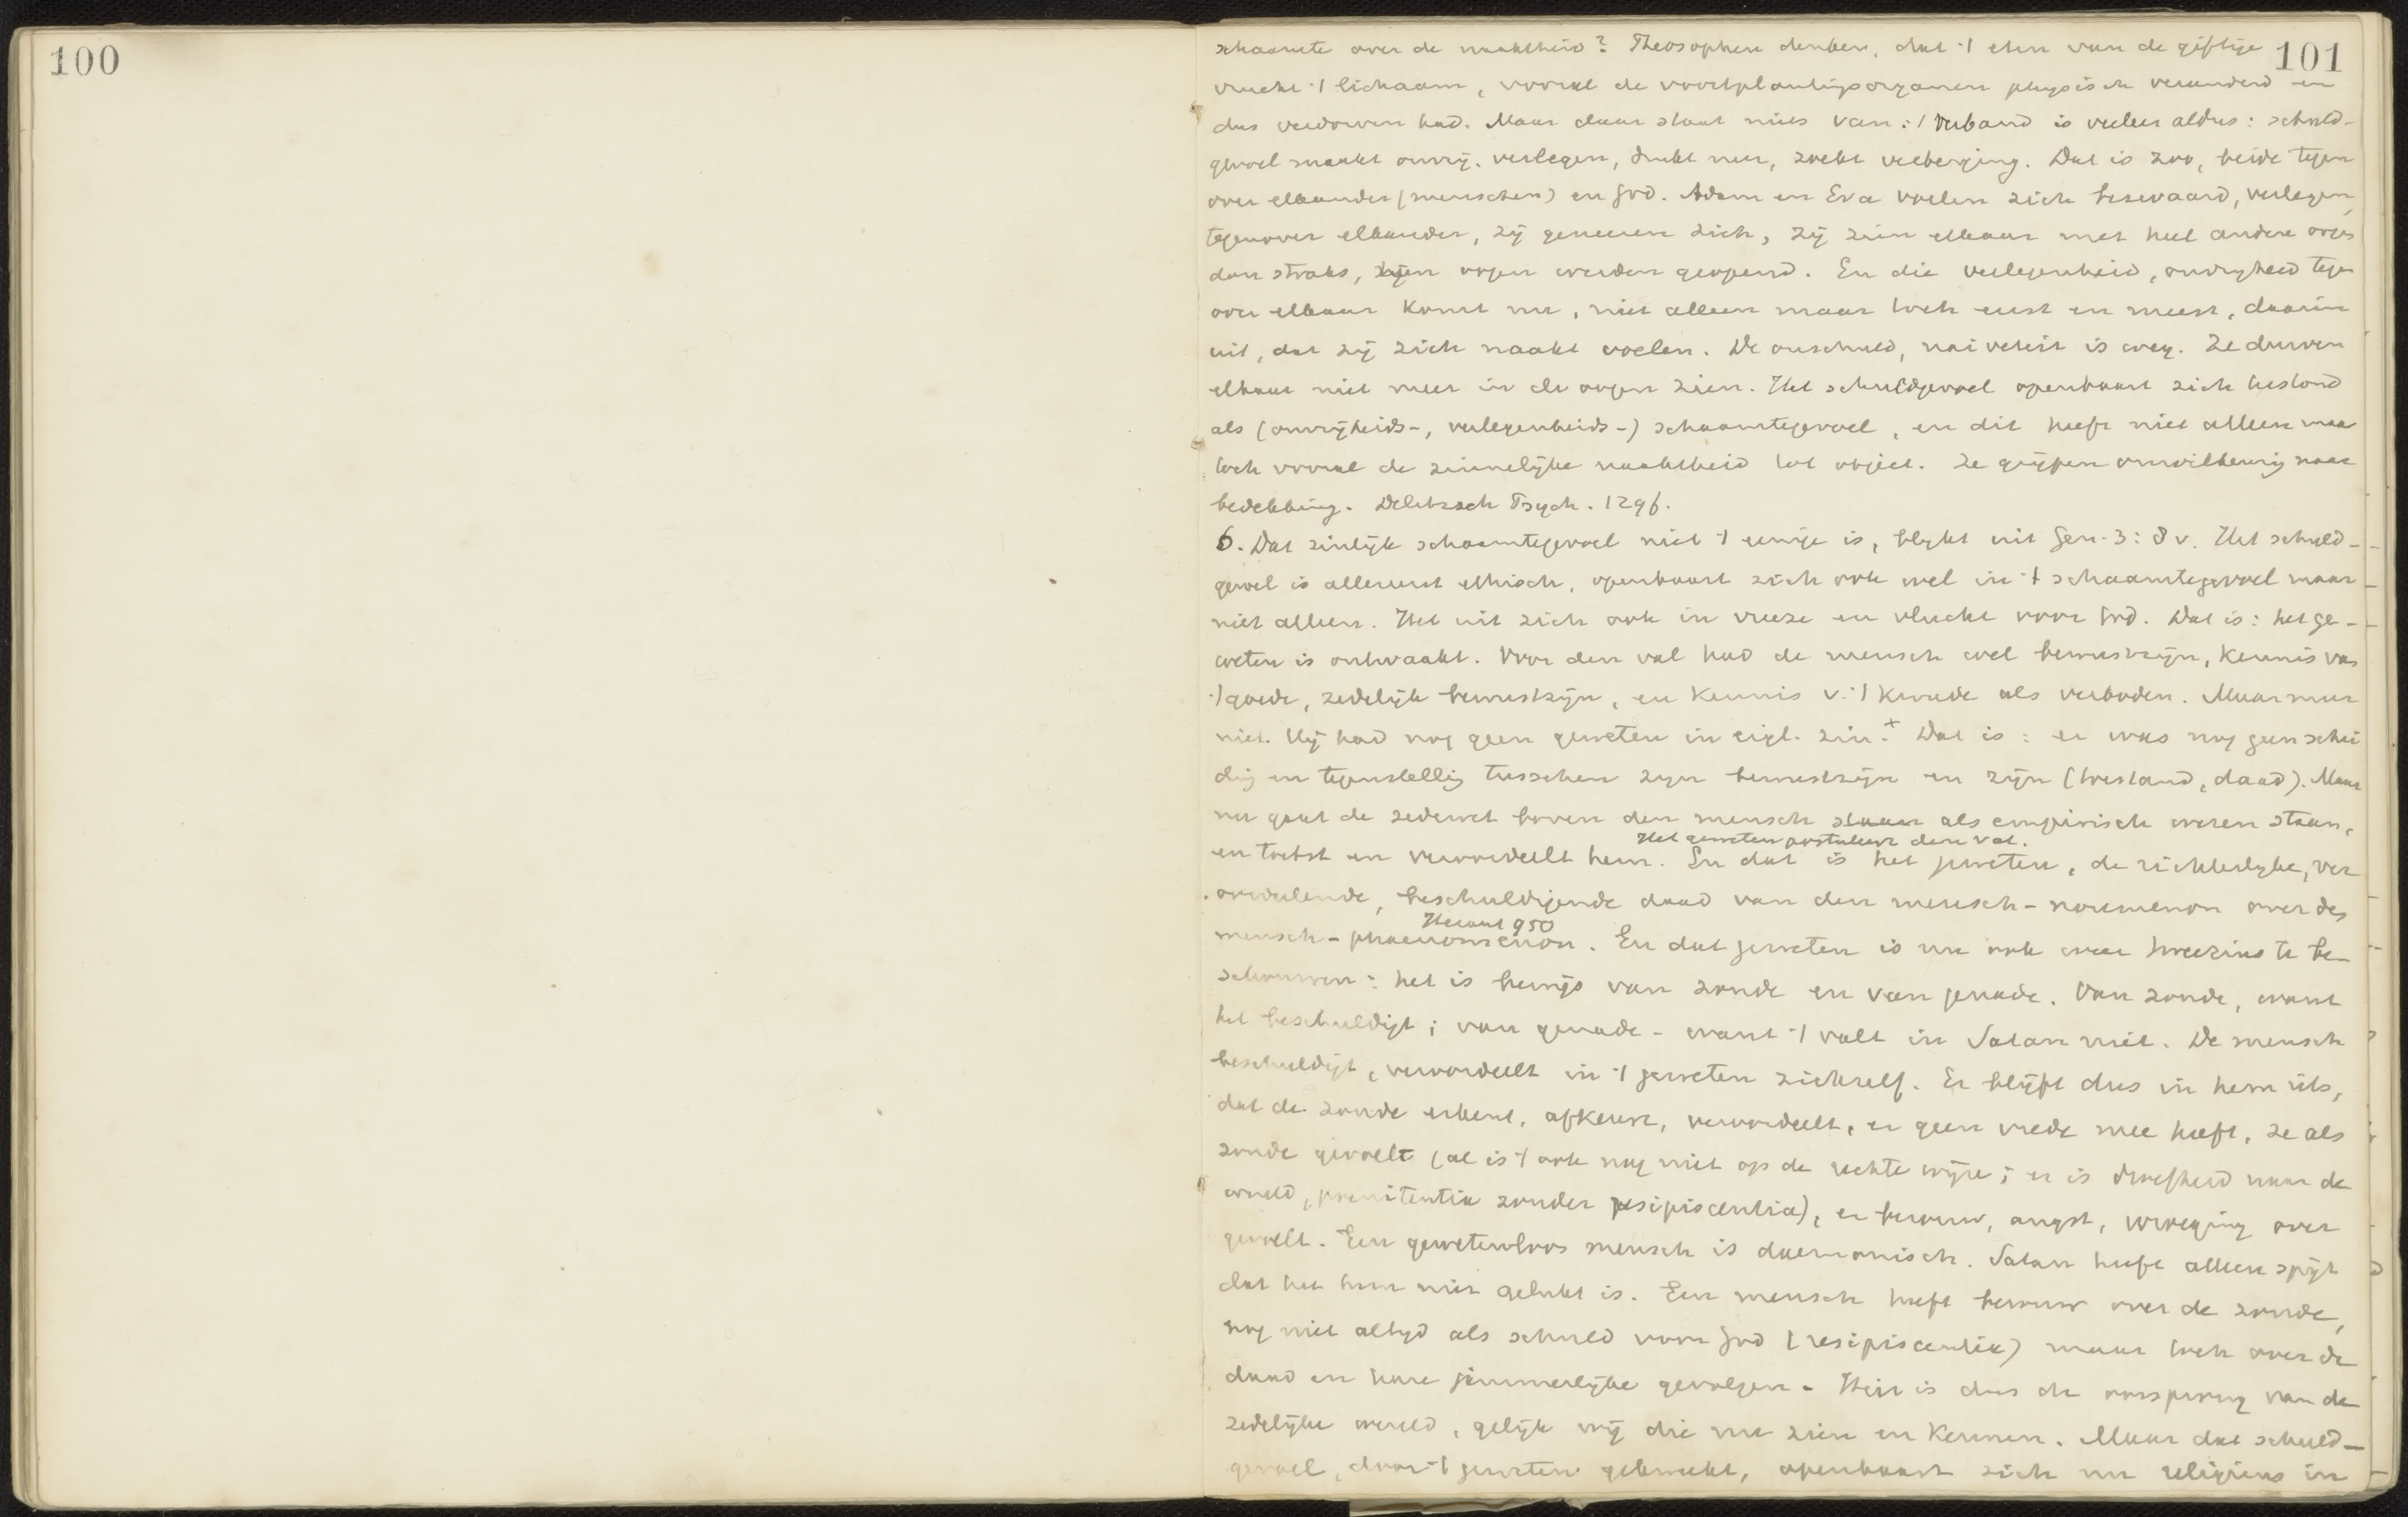 100
101
schaamte over de naaktheid? Theosophen denken, dat 't eten van de giftige
vrucht 't lichaam, vooral de voortplantingsorganen physisch veranderd en
dus verdorven had. Maar daar staat niets van: 't verband is veeleer aldus: schuld-
gevoel maakt onvrij, verlegen, drukt neer, zoekt verberging. Dat is zoo, beide tegen
over elkander (menschen) en God. Adam en Eva voelen zich bezwaard, verlegen,
tegenover elkander, zij geneeren zich, zij zien elkaar met heel andere oogen
dan straks, hun oogen werden geopend. En die verlegenheid, onvrijheid tegen
over elkaar komt nu, niet alleen maar toch eerst en meest, daarin
uit, dat zij zich naakt voelen. De onschuld, naiveteit is weg. Ze durven
elkaar niet meer in de oogen zien. Het schuldgevoel openbaart zich terstond
als (onvrijheids-, verlegenheids-) schaamtegevoel, en dit heeft niet alleen maar
toch vooral de zinnelijke naaktheid tot object. Ze grijpen onwillekeurig naar
bedekking. Delitzsch Psych. 129f.
6. Dat zinlijk schaamtegevoel niet 't eenige is, blijkt uit Gen. 3:8 v. Het schuld-
gevoel is allereerst ethisch, openbaart zich ook wel in 't schaamtegevoel maar
niet alleen. Het uit zich ook in vreeze en vlucht voor God. Dat is: het ge-
weten is ontwaakt. Voor den val had de mensch wel bewustzijn, kennis van
't goede, zedelijk bewustzijn, en kennis v. 't kwade als verboden. Maar meer
niet. Hij had nog geen geweten in eigl. zin.+ Dat is: er was nog geen schei
ding en tegenstelling tusschen zijn bewustzijn en zijn (toestand, daad). Maar
nu gaat de zedewet boven den mensch staan als empirisch wezen staan,
Het geweten postuleert den val.
en toetst en veroordeelt hem. En dat is het geweten, de richterlijke, ver
oordeelende, beschuldigende daad van den mensch-noumenon over des
950
mensch-phaenomenon. En dat geweten is nu ook weer tweezins te be-
schouwen: het is bewijs van zonde en van genade. Van zonde, want
het beschuldigt; van genade - want 't valt in Satan niet. De mensch
beschuldigt, veroordeelt in 't geweten zichzelf. Er blijft dus in hem iets,
dat de zonde erkent, afkeurt, veroordeelt, er geen vrede mee heeft, ze als
zonde gevoelt (al is 't ook nog niet op de rechte wijze; er is droefheid naar de
wereld, poenitentia zonder resipiscentia), er berouw, angst, wroeging over
gevoelt. Een gewetenloos mensch is daemonisch. Satan heeft alleen spijt
dat het hem niet gelukt is. Een mensch heeft berouw over de zonde,
nog niet altijd als schuld voor God (resipiscentia) maar toch over de
daad en hare jammerlijke gevolgen. Hier is dus de oorsprong van de
zedelijke wereld, gelijk wij die nu zien en kennen. Maar dat schuld-
gevoel, door 't geweten gewekt, openbaart zich nu religieus in